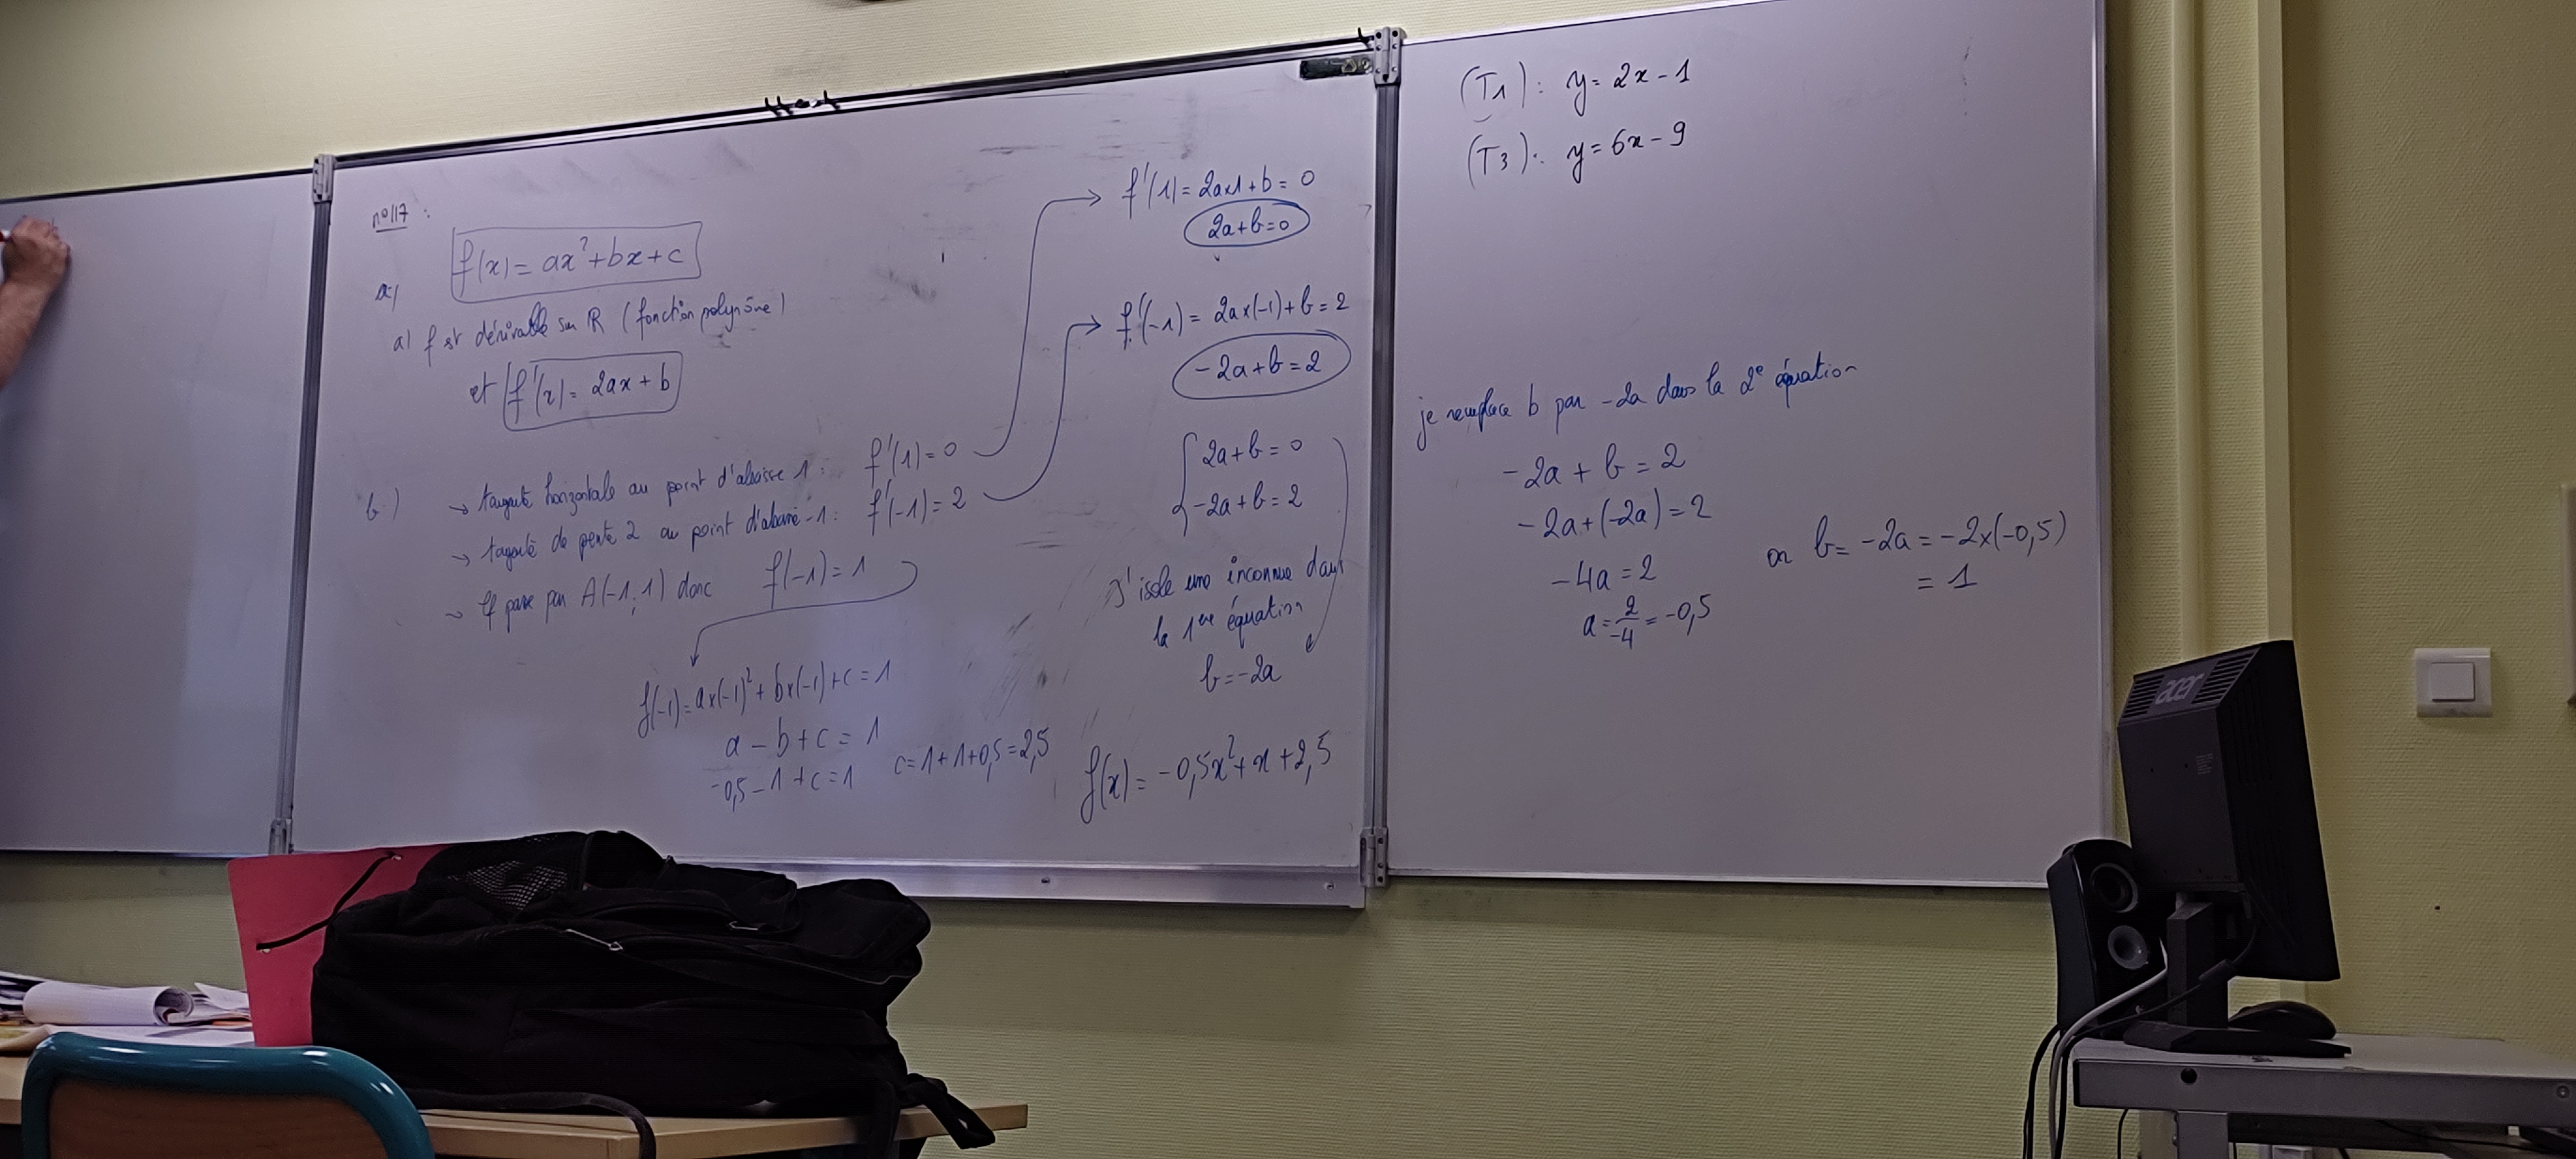 n°117 :
f(x) = ax²+bx+c
a)
a) f est dérivable sur ℝ (fonction polynôme)
et f'(x) = 2ax + b
b.) → tangente horizontale au point d'abscisse 1 : f'(1) = 0
→ tangente de pente 2 au point d'abscisse -1 : f'(-1) = 2
→ passe par A(-1;1) donc f(-1) = 1
f(-1) = a×(-1)² + b×(-1) + c = 1
a - b + c = 1
-0,5 - 1 + c = 1
c = 1 + 1 + 0,5 = 2,5
f'(1) = 2a×1 + b = 0
2a + b = 0
f'(-1) = 2a×(-1) + b = 2
-2a + b = 2
2a + b = 0
-2a + b = 2
J'isole une inconnue dans
la 1ère équation
b = -2a
f(x) = -0,5x² + x + 2,5
(T1) : y = 2x - 1
(T3) : y = 6x - 9
je remplace b par -2a dans la 2e équation
-2a + b = 2
-2a + (-2a) = 2
-4a = 2
a = 2/-4 = -0,5
or b = -2a = -2×(-0,5)
= 1
acer